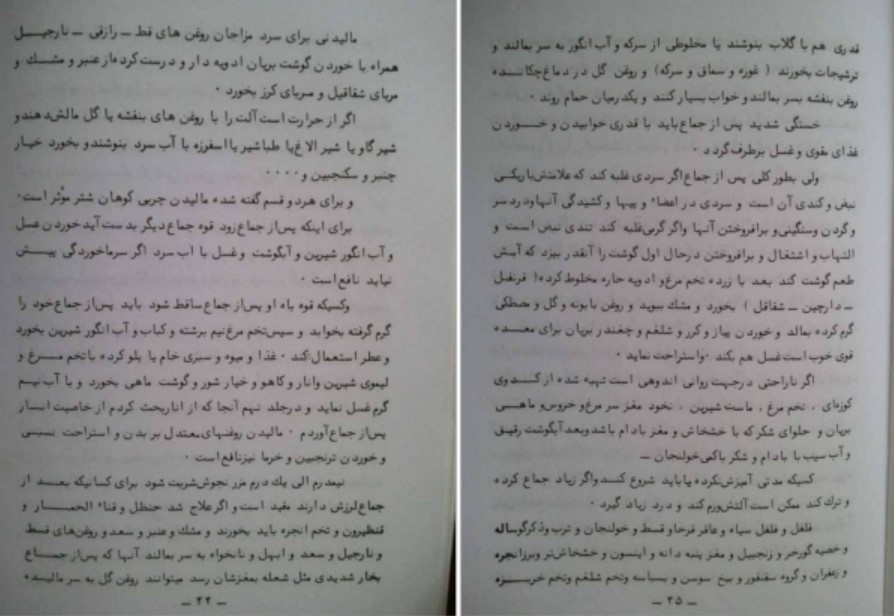 مالیدنی برای سرد مزاجان روغن های قط ــ رازقی ــ نارجیل
همراه با خوردن گوشت بریان ادویه دار و درست کرده‌از عنبر و مشک و
مربای شقاقیل و مربای کرز بخورد ۰
اگر از حرارت است آلت را با روغن های بنفشه یا گل مالش‌دهندو
شیر گاو یا شیر الاغ‌یا طباشیر یا اسفرزه با آب سرد بنوشندو بخورد خیار
چنبر و سکنجبین و ۰۰۰۰
و برای هردو قسم گفته شده مالیدن چربی کوهان شتر موُثر است۰
برای اینکه پس‌از جماع‌زود قوه جماع‌دیگر بدست آید خوردن عسل
و آب انگور شیرین و آبگوشت و غسل با اب سرد اگر سرماخوردگی پیش
نیاید نافع‌است ۰
وکسیکه قوه باه او پس‌از جماع‌ساقط شود باید پس‌از جماع‌خود را
گرم گرفته بخوابد و سپس‌تخم مرغ‌نیم برشته و کباب و آب انگور شیرین بخورد
و عطر استعمال‌کند ۰ غذا و میوه و سبزی خام یا پلو کرده باتخم مرغ و
لیموی شیرین وانار و کاهو و خیار شور و گوشت ماهی بخورد و با آب نیم
گرم غسل نماید و درجلد نهم آنجا که از اناربحث کردم از خاصیت انار
پس‌از جماع‌آوردم ۰ مالیدن روغنهای‌معتدل بر بدن و استراحت نسبی
و خوردن ترنجبین و خرما نیزنافع‌است ۰
نیمدرم الی یك درم مزر نجوش‌شربت شود برای کسانیکه بعد از
جماع‌لرزش دارند مفید است و اگرعلاج شد حنظل و قثاء الحمار و
قنطیرون و تخم انجره باید بخورند و مشك و عنبر و سعد و روغن‌های قسط
و نارجیل و سعد و ابهل و نانخواه به سر بمالند آنها که پس‌از جماع
بخار شدیدی مثل شعله بمغزشان رسد میتوانند روغن گل به سر مالیده
ــ ۴۴ ــ
قدری هم با گلاب بنوشند یا مخلوطی از سرکه و آب انگور به سر بمالند و
ترشیجات بخورند ( غوره و سماق و سرکه) و روغن گل در دماغ‌چکاننده
روغن بنفشه بسر بمالند و خواب بسیار کنند و یکدرمیان حمام روند ۰
خستگی شدید پس از جماع‌باید با قدری خوابیدن و خوردن
غذای مقوی و غسل برطرف‌گردد ۰
ولی بطورکلی پس از جماع‌اگر سردی غلبه کند که علامتش‌باریکی
نبض‌و کندی آن است و سردی در اعضاء و پیها و کشیدگی آنهاودرد سر
و گردن وسنگینی‌و برافروختن آنها واگر گرمی‌غلبه کند تندی نبض است و
التهاب و اشتغال و برافروختن درحال اول گوشت را آنقدر بپزد که آبش
طعم گوشت کند بعد با زرده تخم مرغ‌و ادویه حاره مخلوط کرده( قرنفل
ــ دارچین ــ شقاقل ) بخورد و مشك ببوید و روغن بابونه و گل و مصطکی
گرم کرده بمالد و خوردن پیاز و کرر و شلغم و چغندر بریان برای معده
قوی خوب است‌غسل هم بکند ۰واستراحت نماید ۰
اگر ناراحتی درجهت روانی اندوهی است تهیه شده از کدوی
کوزه‌ای ، تخم مرغ ، ماست شیرین ، نخود مغز سر مرغ‌و خروس‌و ماهی
بریان و حلوای شکر که با خشخاش و مغز بادام باشدوبعد آبگوشت رقیق
و آب سیب با بادام و شکر باکمی‌خولنجان ــ
کسیکه مدتی آمیزش‌نکرده یاباید شروع کندواگر زیاد جماع کرده
و ترك کند ممکن است آلتش‌ورم کند و درد زیاد گیرد ۰
فلفل و فلفل سیاه و عاقر قرحاو قسط و خولنجان و ترب وذکرگوساله
و خصیه گورخر و زنجبیل و مغز پنبه دانه و اینسون و خشخاش‌تر وبرزانجره
و زعفران و گروه سقنقور و بیخ سوسن و بسباسه وتخم شلغم وتخم خربزه
ــ ۴۵ ــ